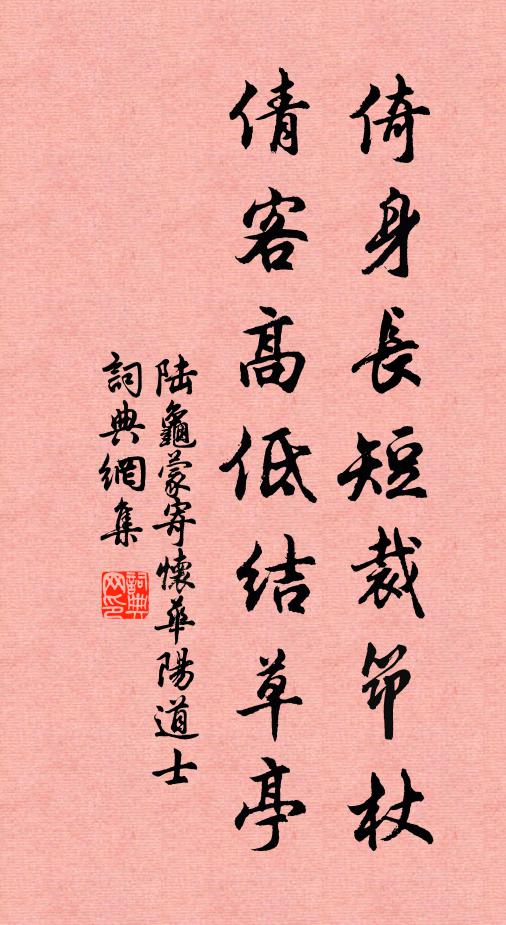 倚身長短裁筇杖
倩客高低結草亭
陸龜蒙寄懷華陽道士
詞典網集
詞典网印